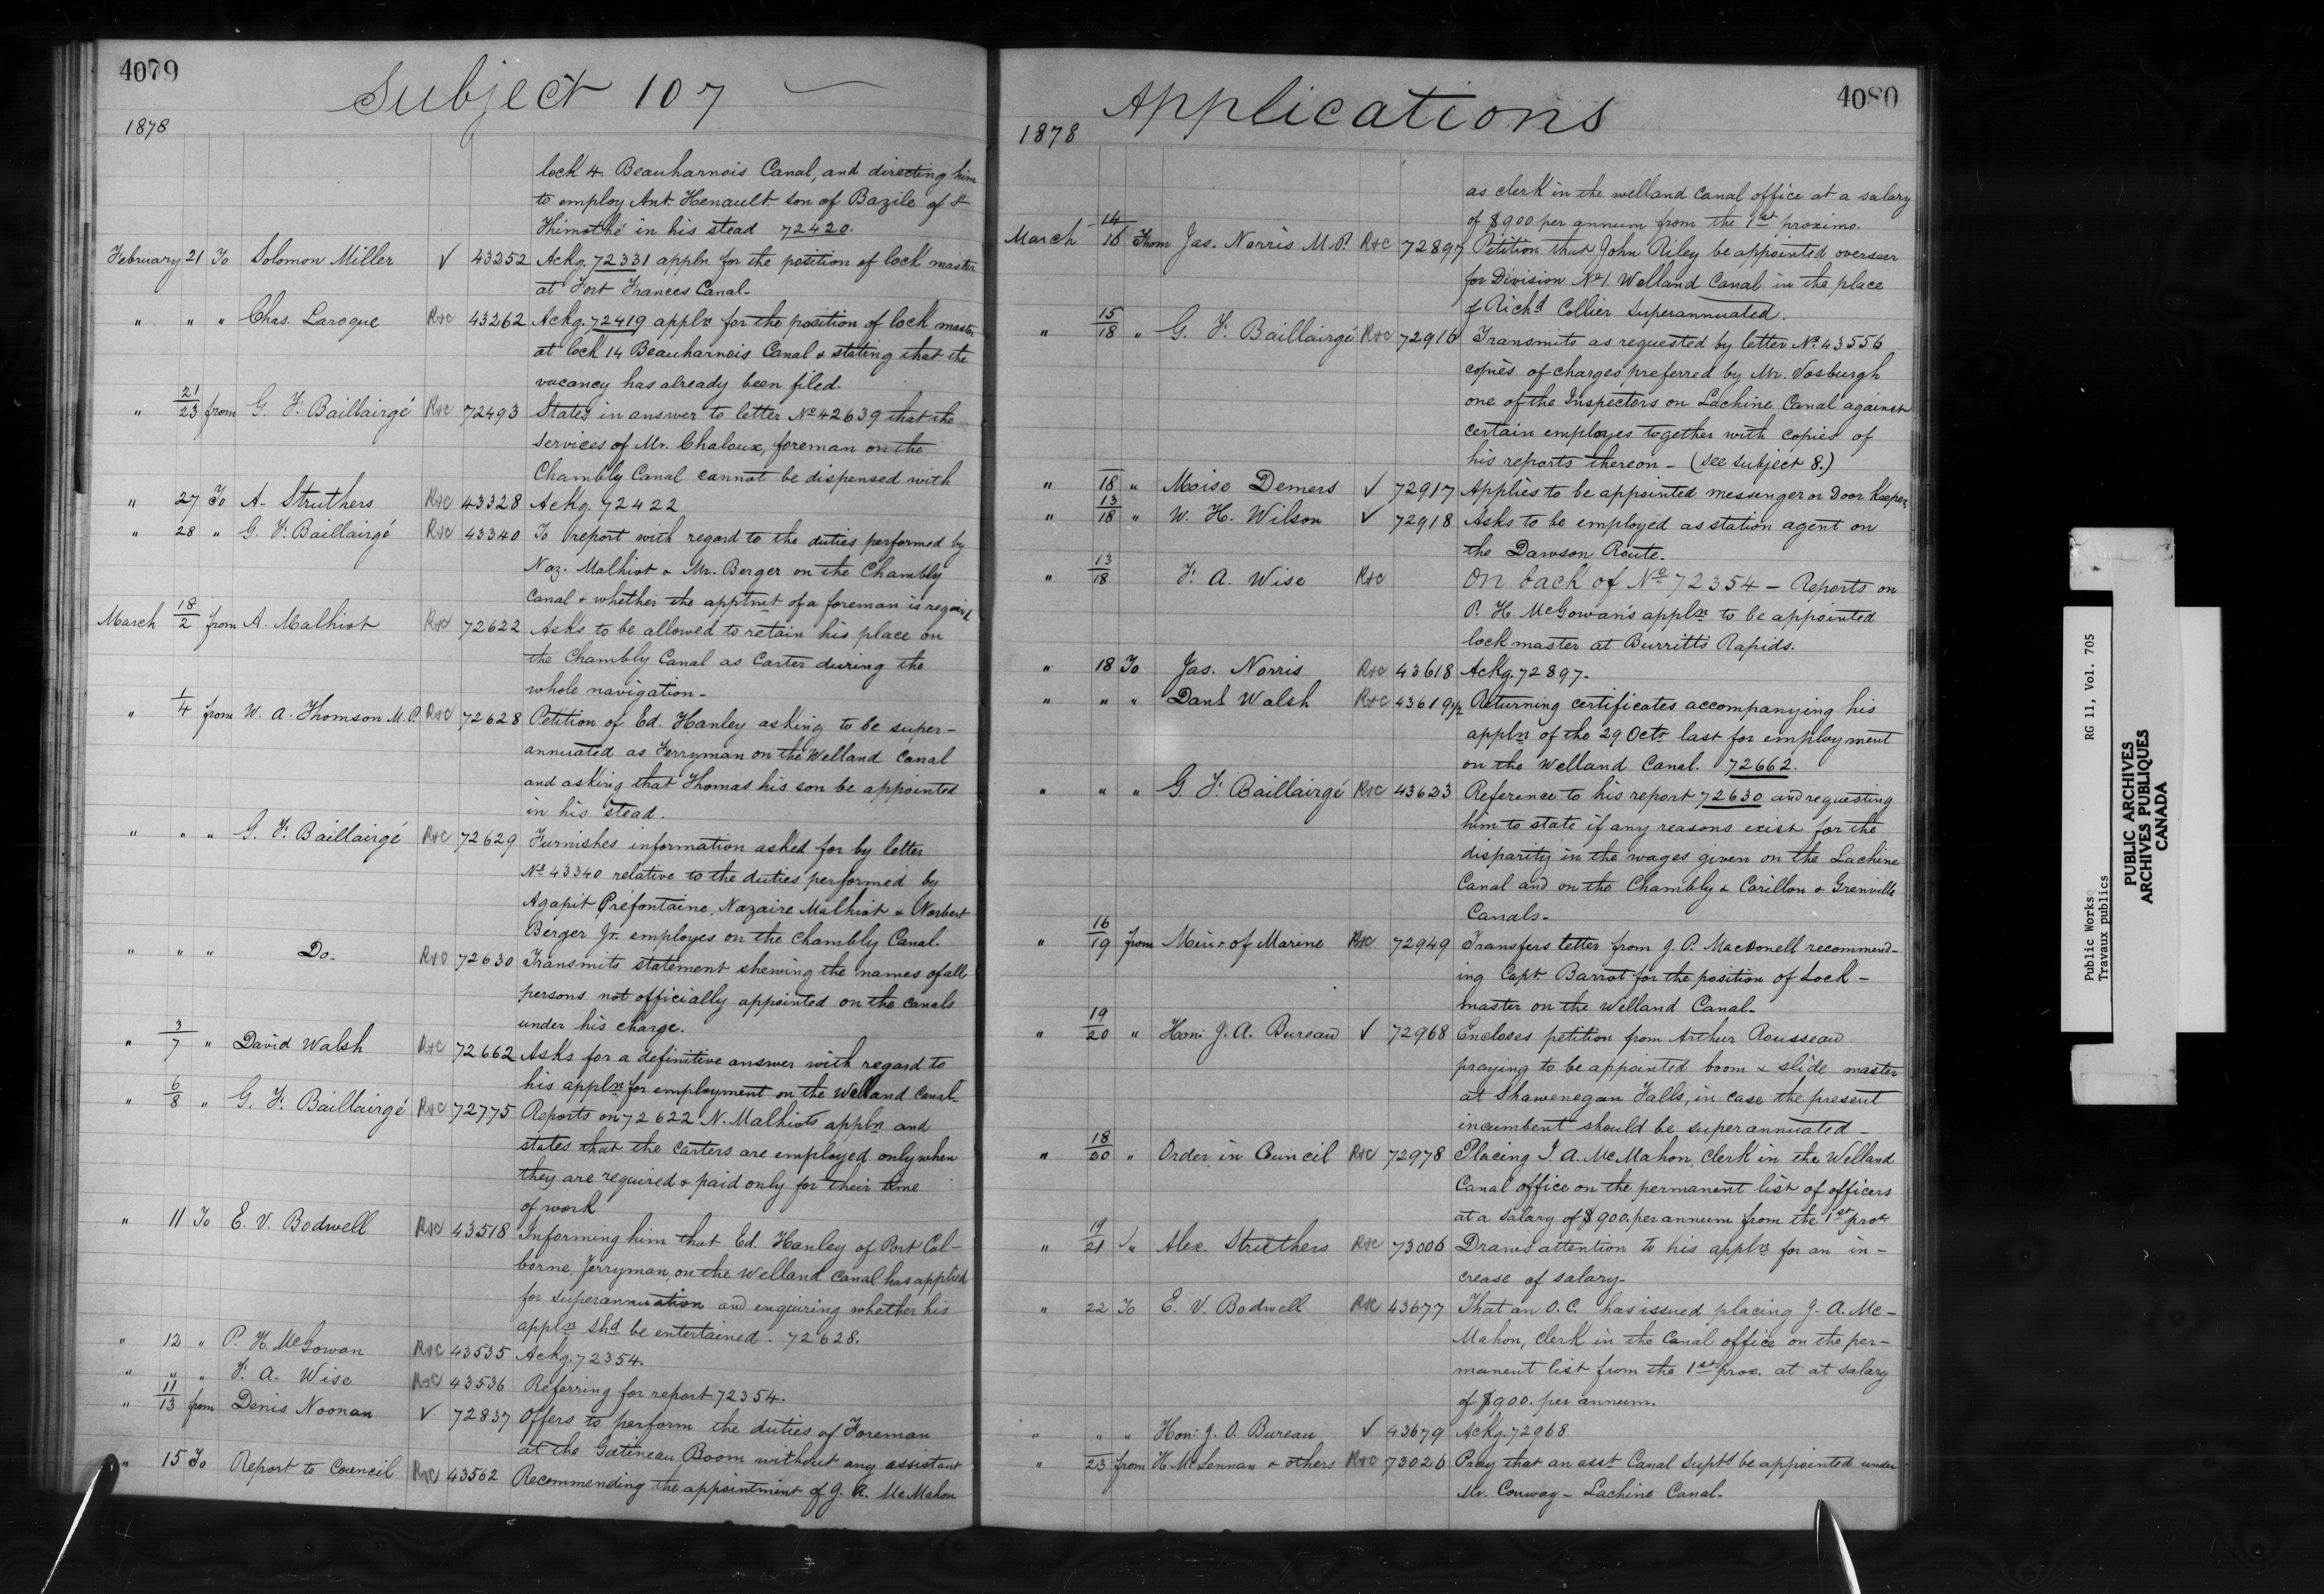 4079
Subject 107
1878
lock 4 Beauharnois Canal, and directing him
to employ Ant. Henault son of Bazile of St
Thimothé in his stead 72420.
February 21 To Solomon Miller ✓ 43252 Ackg. 72331 appln for the position of lock master
at Fort Frances Canal-
" " " Chas. Laroque R&C 43262 Ackg. 72419 appln for the position of lock master
at lock 14 Beauharnois Canal & stating that the
vacancy has already been filed.
" 21/23 from G. F. Baillairgé R&C 72493 States in answer to letter No 42639 that the
services of Mr. Chaloux, foreman on the
Chambly Canal cannot be dispensed with
" 27 To A. Struthers R&C 43328 Ackg. 72422
" 28 " G. F. Baillairgé R&C 43340 To report with regard to the duties performed by
Naz. Malhiot & Mr. Berger on the Chambly
Canal & whether the apptmt of a foreman is required
March 18/2 from A. Malhiot R&C 72622 Asks to be allowed to retain his place on
the Chambly Canal as Carter during the
whole navigation-
" 1/4 from W. A. Thomson M.P. R&C 72628 Petition of Ed. Hanley asking to be super-
annuated as Ferryman on the Welland Canal
and asking that Thomas his son be appointed
in his stead.
" " " G. F. Baillairgé R&C 72629 Furnishes information asked for by letter
No 43340 relative to the duties performed by
Agapit Préfontaine, Nazaire Malhiot & Norbert
Berger Jr. employes on the Chambly Canal.
" " " Do- R&C 72630 Transmits statement shewing the names of all
persons not officially appointed on the canals
under his charge.
" 3/7 " David Walsh R&C 72662 Asks for a definitive answer with regard to
his appln for employment on the Welland Canal-
" 6/8 " G. F. Baillairgé R&C 72775 Reports on 72622 N. Malhiots appln and
states that the carters are employed only when
they are required & paid only for their time
of work
" 11 To E. V. Bodwell R&C 43518 Informing him that Ed. Hanley of Port Col-
borne, Ferryman, on the Welland Canal has applied
for superannuation and enquiring whether his
appln shd be entertained. 72628.
" 12 " P. H. McGowan R&C 43535 Ackg. 72354.
" " " F. A. Wise R&C 43536 Referring for report 72354.
" 11/13 from Denis Noonan ✓ 72837 Offers to perform the duties of Foreman
at the Gatineau Boom without any assistant
" 15 To Report to Council R&C 43562 Recommending the appointment of J. A. McMahon
4080
Applications
1878
as clerk in the welland Canal office at a salary
of $900 per annum from the 1st proximo.
March 14/16 From Jas. Norris M.P. R&C 72897 Petition that John Riley be appointed overseer
for Division No 1. Welland Canal in the place
of Richd Collier Superannuated.
" 15/18 " G. F. Baillairgé R&C 72916 Transmits as requested by letter No 43556
copies of charges preferred by Mr. Vosburgh
one of the Inspectors on Lachine Canal against
certain employes together with copies of
his reports thereon - (see subject 8.)
" 18 " Moise Demers ✓ 72917 Applies to be appointed messenger or Door Keeper
" 13/18 " W. H. Wilson ✓ 72918 Asks to be employed as station agent on
the Dawson Route.
" 13/18 F. A. Wise R&C On back of No 72354 - Reports on
P. H. McGowan's appln to be appointed
lock master at Burritts Rapids.
" 18 To Jas. Norris R&C 43618 Ackg. 72897.
" " " Danl Walsh R&C 43619 1/2 Returning certificates accompanying his
appln of the 29 Octr last for employment
on the Welland Canal. 72662.
" " " G. F. Baillairgé R&C 43623 Reference to his report 72630 and requesting
him to state if any reasons exist for the
disparity in the wages given on the Lachine
Canal and on the Chambly & Carillon & Grenville
Canals-
" 16/19 from Minr of Marine R&C 72949 Transfers letter from J. P. Macdonell recommend-
ing Capt. Barrot for the position of Lock-
master on the Welland Canal-
" 19/20 " Hon: J. A. Bureau ✓ 72968 Encloses petition from Arthur Rousseau
praying to be appointed boom & slide master
at Shawenegan Falls, in case the present
incumbent should be superannuated-
" 18/20 " Order in Council R&C 72978 Placing J. A. McMahon, clerk in the Welland
Canal office on the permanent list of officers
at a salary of $900. per annum from the 1st prox
" 19/21 " Alex. Struthers R&C 73006 Draws attention to his appln for an in-
crease of salary-
" 22 To E. V. Bodwell R&C 43677 That an O.C. has issued placing J. A. Mc-
Mahon, clerk in the Canal office on the per-
manent list from the 1st prox. at at salary
of $900. per annum.
" " " Hon: J. O. Bureau ✓ 43679 Ackg. 72968
" 23 from H McLennan & others R&C 73026 Pray that an asst Canal Supt be appointed under
Mr. Conway - Lachine Canal.
Public Works RG 11, Vol. 705
Travaux publics
PUBLIC ARCHIVES
ARCHIVES PUBLIQUES
CANADA